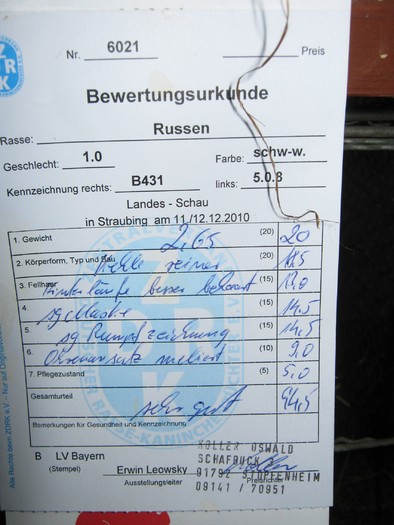 Nr. 6021 Preis
Bewertungsurkunde
Rasse: Russen
Geschlecht: 1.0 Farbe: schw-w.
Kennzeichnung rechts: B431 links: 5.0.8
Landes - Schau
in Straubing am 11./12.12.2010
1. Gewicht 2,65 (20) 20
2. Körperform, Typ und Bau (20)
3. Fellhaar Hinterläufe besser behaart (15)
4. sg Maske (15) 14,5
5. sg Rumpfzeichnung (15) 14,5
6. Ohrenansatz meliert (10) 9,0
7. Pflegezustand (5) 5,0
Gesamturteil sehr gut
Bemerkungen für Gesundheit und Kennzeichnung:
B LV Bayern
(Stempel)
Erwin Leowsky
Ausstellungsleiter
KOLLER OSWALD
SCHAFBRUCK
91792 STOPFENHEIM
Preisrichter
09141 / 70951